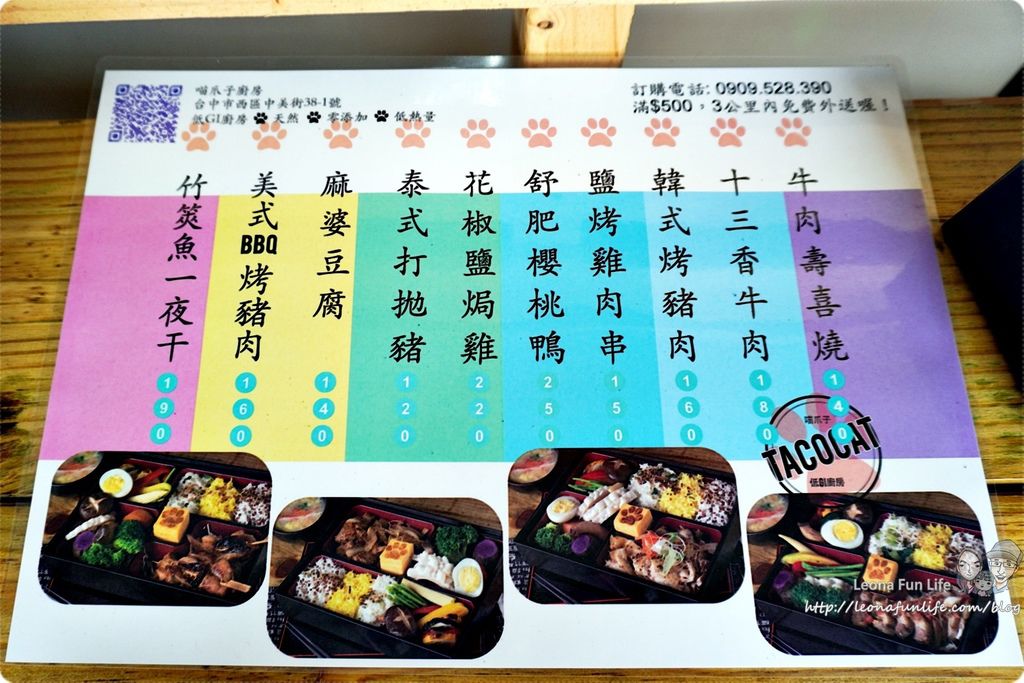 喵爪子廚房
台中市西區中美街38-1號
低GI廚房 天然 零添加 低熱量
訂購電話: 0909.528.390
滿$500，3公里內免費外送喔！
牛肉壽喜燒 140
十三香牛肉 180
韓式烤豬肉 160
鹽烤雞肉串 150
舒肥櫻桃鴨 250
花椒鹽焗雞 220
泰式打拋豬 120
麻婆豆腐 140
美式BBQ烤豬肉 160
竹筴魚一夜干 190
喵爪子
TACOCAT
低GI廚房
Leona Fun Life
http://leonafunlife.com/blog